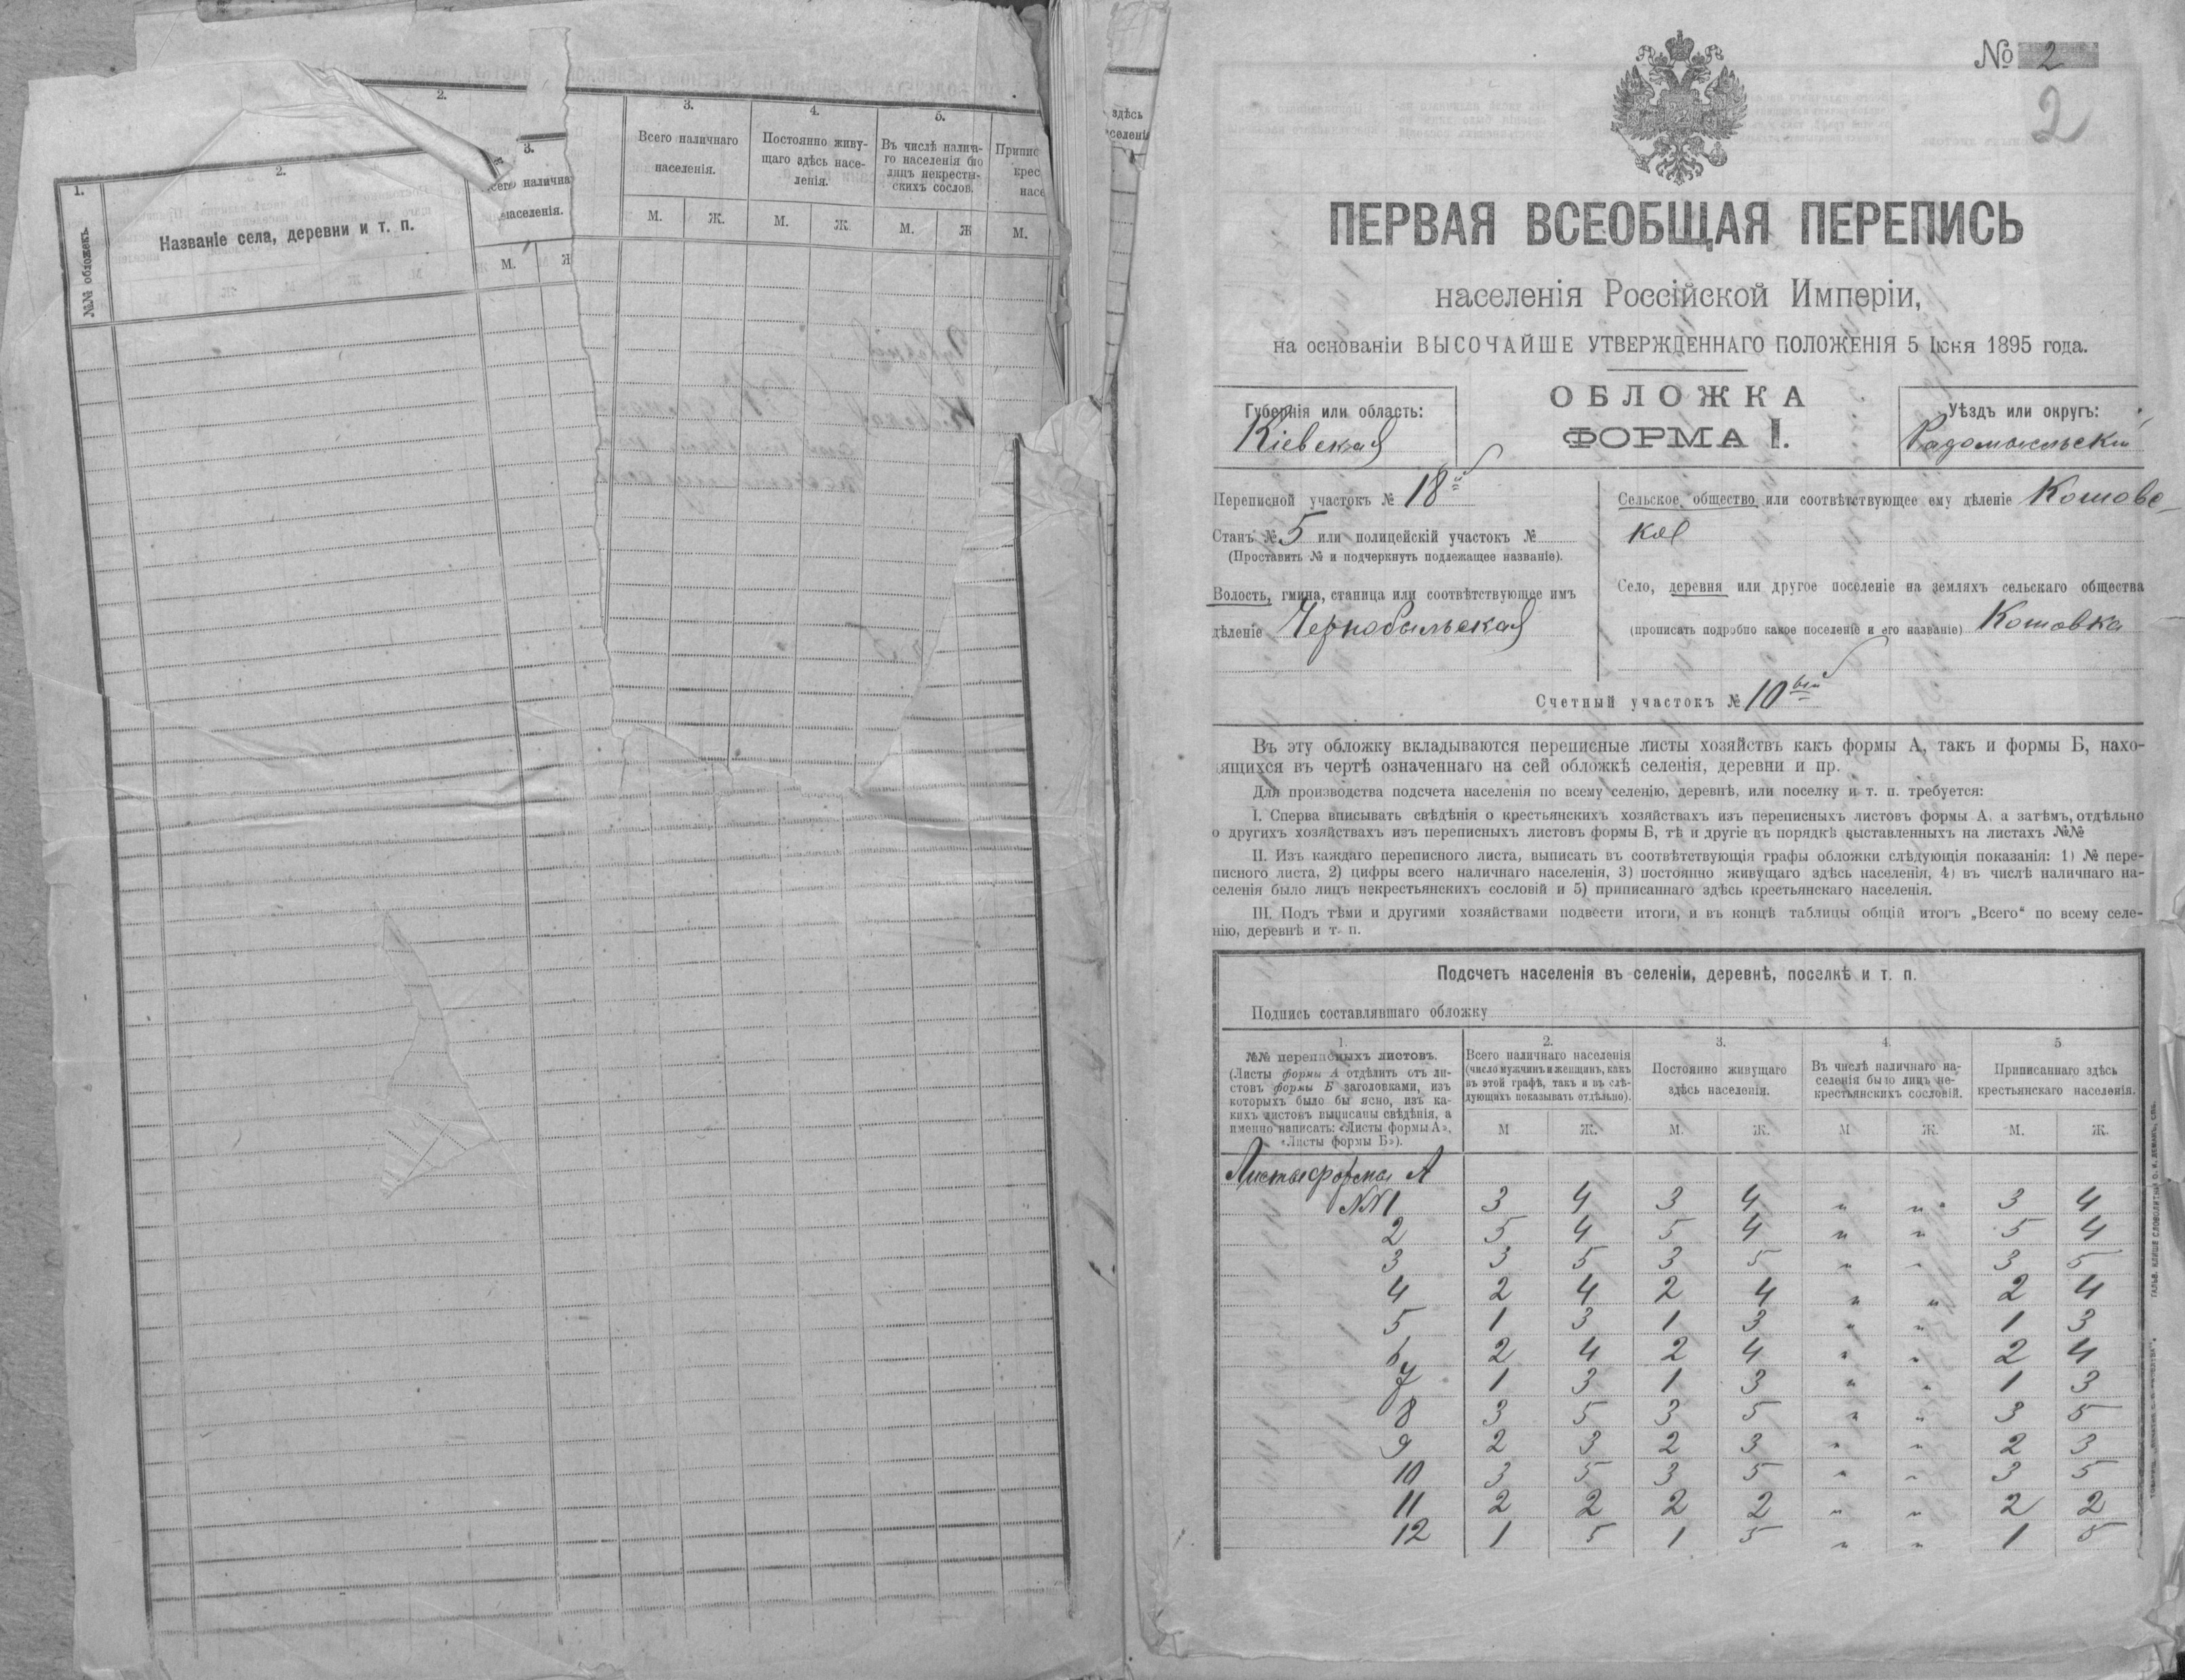 1.
№№ обложекъ.
2.
Названіе села, деревни и т. п.
3.
населенія.
М.
2.
3.
Всего наличнаго
населенія.
М. Ж.
4.
Постоянно живу-
щаго здѣсь насе-
ленія.
М. Ж.
5.
Въ числѣ налична-
го населенія было
лицъ некрестьян-
скихъ сослов.
М. Ж
Припис
крес
насе
М.
здѣсь
№ 2
2
ПЕРВАЯ ВСЕОБЩАЯ ПЕРЕПИСЬ
населенія Россійской Имперіи,
на основаніи ВЫСОЧАЙШЕ УТВЕРЖДЕННАГО ПОЛОЖЕНІЯ 5 Іюня 1895 года.
Губернія или область:
Кіевская
ОБЛОЖКА
ФОРМА I.
Уѣздъ или округъ:
Радомысльскій
Переписной участокъ № 18й
Станъ № 5 или полицейскій участокъ №
(Проставить № и подчеркнуть подлежащее названіе).
Волость, гмина, станица или соотвѣтствующее имъ
дѣленіе Чернобыльская
Сельское общество или соотвѣтствующее ему дѣленіе Котовс-
кое
Село, деревня или другое поселеніе на земляхъ сельскаго общества
(прописать подробно какое поселеніе и его названіе) Котовка
Счетный участокъ № 10ый
Въ эту обложку вкладываются переписные листы хозяйствъ какъ формы А, такъ и формы Б, нахо-
дящихся въ чертѣ означеннаго на сей обложкѣ селенія, деревни и пр.
Для производства подсчета населенія по всему селенію, деревнѣ, или поселку и т. п. требуется:
I. Сперва вписывать свѣдѣнія о крестьянскихъ хозяйствахъ изъ переписныхъ листовъ формы А, а затѣмъ, отдѣльно
о другихъ хозяйствахъ изъ переписныхъ листовъ формы Б, тѣ и другіе въ порядкѣ выставленныхъ на листахъ №№
II. Изъ каждаго переписного листа, выписать въ соотвѣтствующія графы обложки слѣдующія показанія: 1) № пере-
писного листа, 2) цифры всего наличнаго населенія, 3) постоянно живущаго здѣсь населенія, 4) въ числѣ наличнаго на-
селенія было лицъ некрестьянскихъ сословій и 5) приписаннаго здѣсь крестьянскаго населенія.
III. Подъ тѣми и другими хозяйствами подвести итоги, и въ концѣ таблицы общій итогъ „Всего“ по всему селе-
нію, деревнѣ и т. п.
Подсчетъ населенія въ селеніи, деревнѣ, поселкѣ и т. п.
Подпись составлявшаго обложку
1.
№№ переписныхъ листовъ.
(Листы формы А отдѣлить отъ ли-
стовъ формы Б заголовками, изъ
которыхъ было бы ясно, изъ ка-
кихъ листовъ выписаны свѣдѣнія, а
именно написать: «Листы формы А»,
«Листы формы Б»).
2.
Всего наличнаго населенія
(число мужчинъ и женщинъ, какъ
въ этой графѣ, такъ и въ слѣ-
дующихъ показывать отдѣльно).
М Ж.
3.
Постоянно живущаго
здѣсь населенія.
М. Ж.
4.
Въ числѣ наличнаго на-
селенія было лицъ не-
крестьянскихъ сословій.
М Ж.
5
Приписаннаго здѣсь
крестьянскаго населенія.
М. Ж.
Листы формы А
№№ 1 3 4 3 4 " " 3 4
2 5 4 5 4 " " 5 4
3 3 5 3 5 " " 3 5
4 2 4 2 4 " " 2 4
5 1 3 1 3 " " 1 3
6 2 4 2 4 " " 2 4
7 1 3 1 3 " " 1 3
8 3 5 3 5 " " 3 5
9 2 3 2 3 " " 2 3
10 3 5 3 5 " " 3 5
11 2 2 2 2 " " 2 2
12 1 5 1 5 " " 1 5